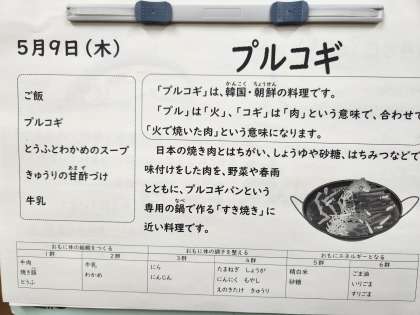 5月9日(木)
プルコギ
ご飯
プルコギ
とうふとわかめのスープ
きゅうりの甘酢づけ
牛乳
「プルコギ」は、韓国・朝鮮の料理です。
「プル」は「火」、「コギ」は「肉」という意味で、合わせて
「火で焼いた肉」という意味になります。
日本の焼き肉とはちがい、しょうゆや砂糖、はちみつなどで
味付けをした肉を、野菜や春雨
とともに、プルコギパンという
専用の鍋で作る「すき焼き」に
近い料理です。
おもに体の組織をつくる おもに体の調子を整える おもにエネルギーとなる
1群 2群 3群 4群 5群 6群
牛肉 牛乳 にら たまねぎ しょうが 精白米 ごま油
焼き豚 わかめ にんじん にんにく もやし 砂糖 いりごま
とうふ えのきたけ きゅうり すりごま